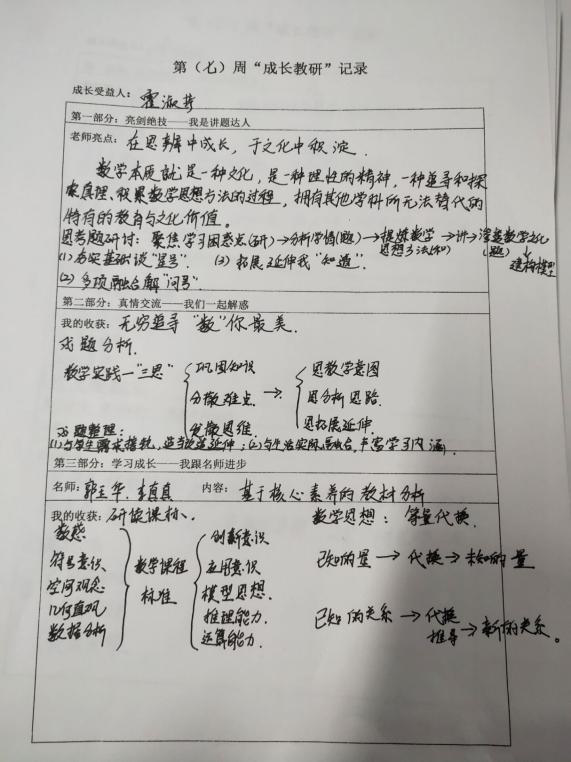 第（七）周“成长教研”记录
成长受益人：霍淑
第一部分：亮剑绝技——我是讲题达人
老师亮点：在思辨中成长，于文化中积淀．
数学本质就是一种文化，是一种理性的精神，一种追寻和探
索真理、积累数学思想方法的过程，拥有其他学科所无法替代的
特有的教育与文化价值。
思考题研讨：聚焦学习困惑点(研)→分析学情(题)→提炼数学思想方法(知)→讲→深鉴数学文化(题)→建构模型
(1)夯实基础谈“星号”． (3)拓展延伸我“知道”．
(2)多项融合解“问号”
第二部分：真情交流——我们一起解惑
我的收获：无穷追寻 “数”你最美．
戏题分析．
数学实践—“三思” 巩固知识 思教学意图
分散难点 → 思分析思路．
发散思维 思拓展延伸．
题整理：
(1)与学生需求接轨，适当改造延伸；(2)与生活实际融合，丰富学习内涵
第三部分：学习成长——我跟名师进步
名师：郭玉华．李真真 内容：基于核心素养的教材分析
我的收获：研读课标、 数学思想：等量代换．
数感 创新意识
符号意识、 数学课程 应用意识 已知的量 → 代换 → 未知的量
空间观念 标准 模型思想．
几何直观 推理能力． 已知的关系 → 代换推导 → 新的关系。
数据分析 运算能力．